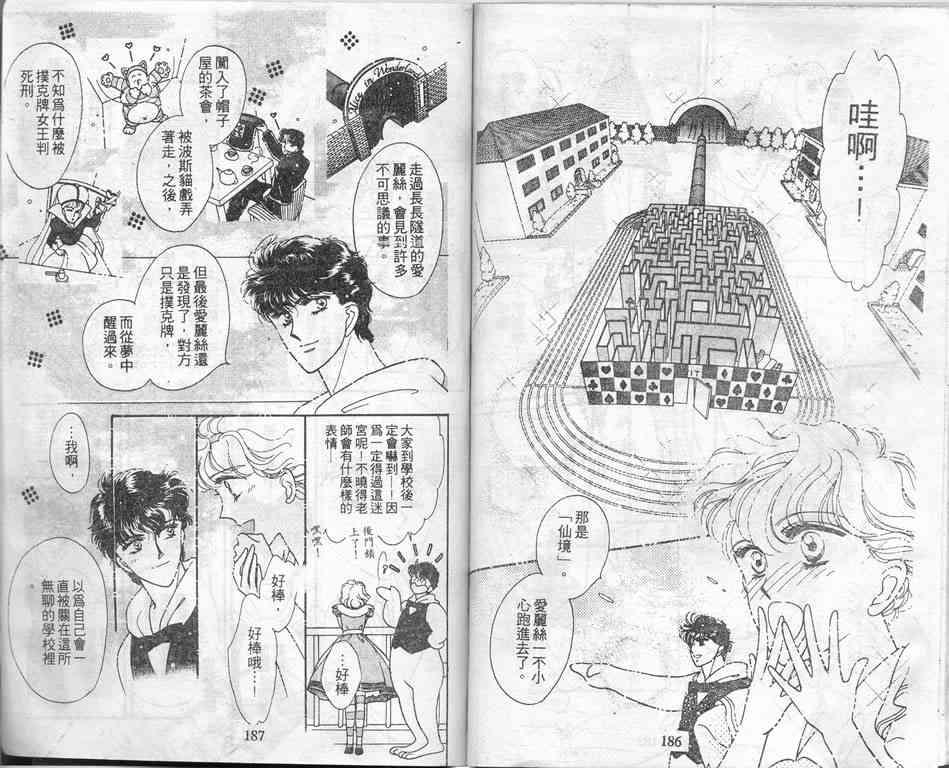 哇啊…！
那是
「仙境」。
愛麗絲一不小
心跑進去了。
186
Alice in Wonderland
走過長長隧道的愛
麗絲，會見到許多
不可思議的事。
闖入了帽子
屋的茶會，
被波斯貓戲弄
著走，之後，
不知爲什麼被
撲克牌女王判
死刑。
但最後愛麗絲還
是發現了，對方
只是撲克牌，
而從夢中
醒過來。
大家到學校後一
定會嚇到—！因
爲一定得過這迷
宮呢！不曉得老
師會有什麼樣的
表情—
後門鎖
上了！
嘿嘿！
…好棒
好棒，
好棒哦…！
…我啊，
以爲自己會一
直被關在這所
無聊的學校裡
。
187